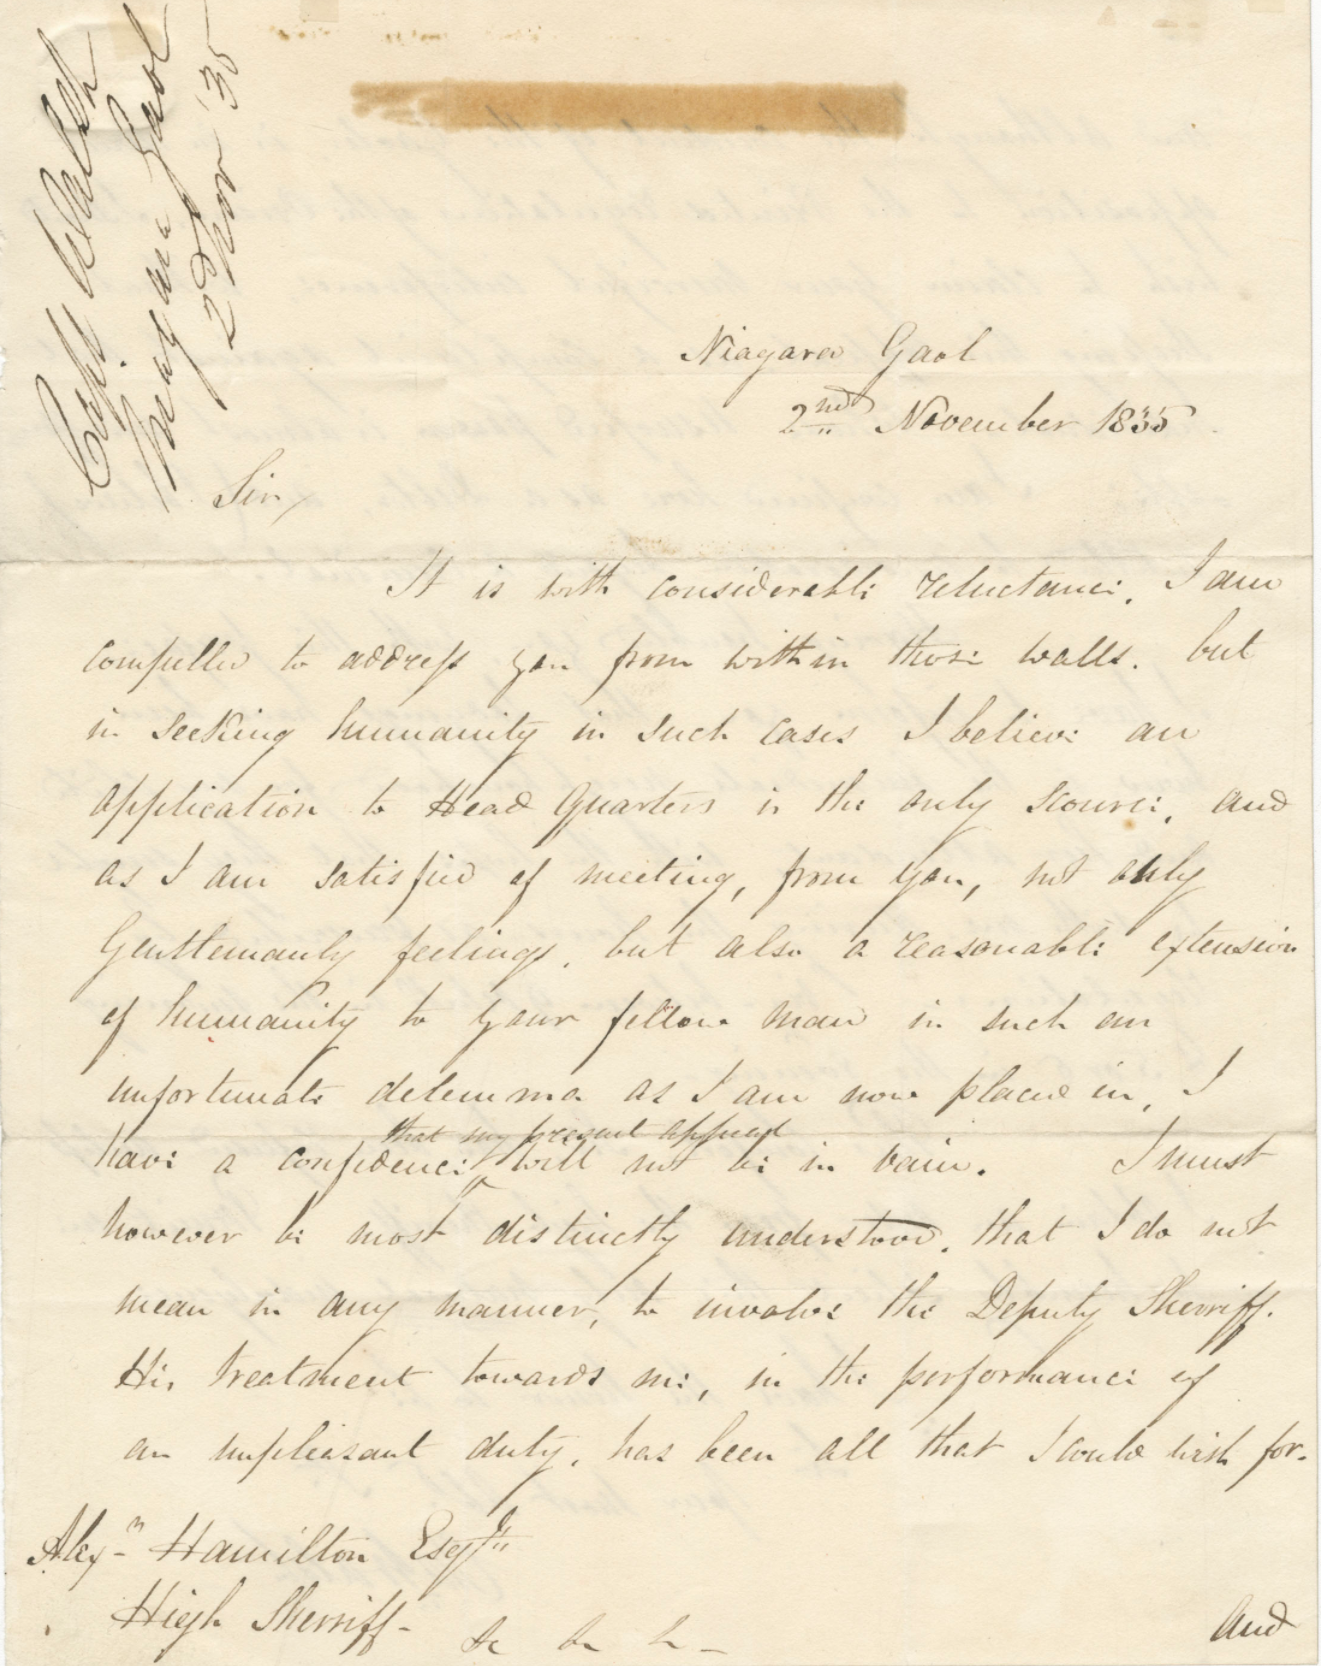 Capt Walsh
Niagara Gaol
2d Nov '35
Niagara Gaol
2nd November 1835
Sir,
It is with considerable reluctance, I am
compelled to address you from within these walls. but
in seeking humanity in such cases I believe an
application to Head Quarters is the only source, and
as I am satisfied of meeting, from you, not only
Gentlemanly feelings, but also a reasonable extension
of humanity to your fellow man in such an
unfortunate delemma as I am now placed in, I
that my present appeal
have a confidence ^ will not be in vain. I must
however be most distinctly understood, that I do not
mean in any manner, to involve the Deputy Sherriff.
His treatment towards me, in the performance of
an unpleasant duty, has been all that I could wish for.
Alexr Hamilton Esqre
High Sherriff-
&c &c &c -
and